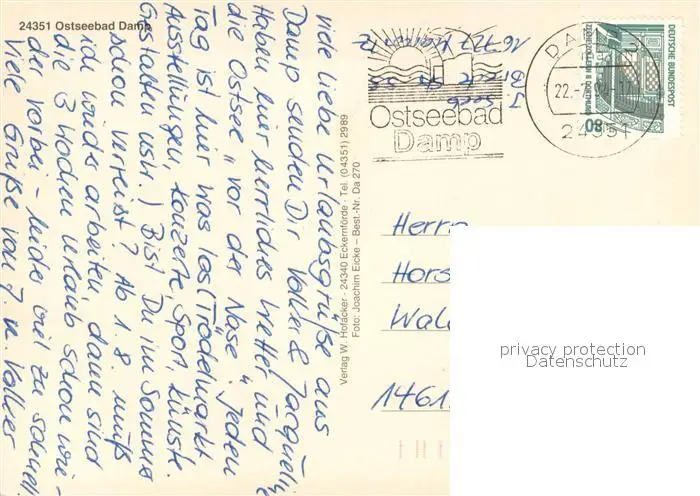 24351 Ostseebad Damp
viele liebe Urlaubsgrüße aus
Damp senden Dir Volker &
Haben hier herrliches Wetter und
die Ostsee "vor der Nase". Jeden
Tag ist hier was los (Trödelmarkt
Ausstellungen, Konzerte, Sport, Künste.
Gestalten usw.) Bist Du im Sommer
schon verreist? Ab 1.8. muß
ich wieder arbeiten, dann sind
die 3 Wochen Urlaub schon wie-
der vorbei - leider viel zu schnell
Viele Grüße von J. u. Volker
Verlag W. Hofäcker · 24340 Eckernförde · Tel. (04351) 2989
Foto: Joachim Eicke – Best.-Nr. Da 270
Ostseebad
Damp
DAMP
22.-7.
24351
DEUTSCHE BUNDESPOST
80
Herrn
Hors
Wal
1461
privacy protection
Datenschutz